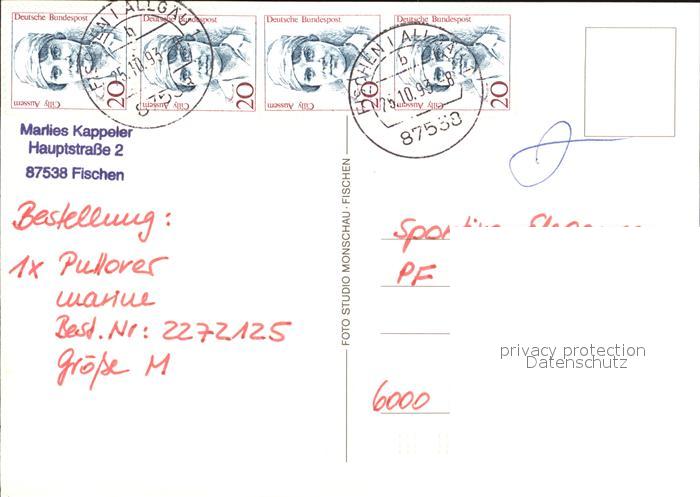 Deutsche Bundespost Deutsche Bundespost Deutsche Bundespost Deutsche Bundespost
Cilly Aussem Cilly Aussem Cilly Aussem Cilly Aussem
20 20 20 20
FISCHEN I ALLGÄU 1
b
25.10.93
87538
FISCHEN I ALLGÄU 1
b
25.10.93 - 8
87538
Marlies Kappeler
Hauptstraße 2
87538 Fischen
Bestellung:
1x Pullover
marine
Best. Nr: 2272125
Größe M
FOTO STUDIO MONSCHAU · FISCHEN
PF
6000
privacy protection
Datenschutz